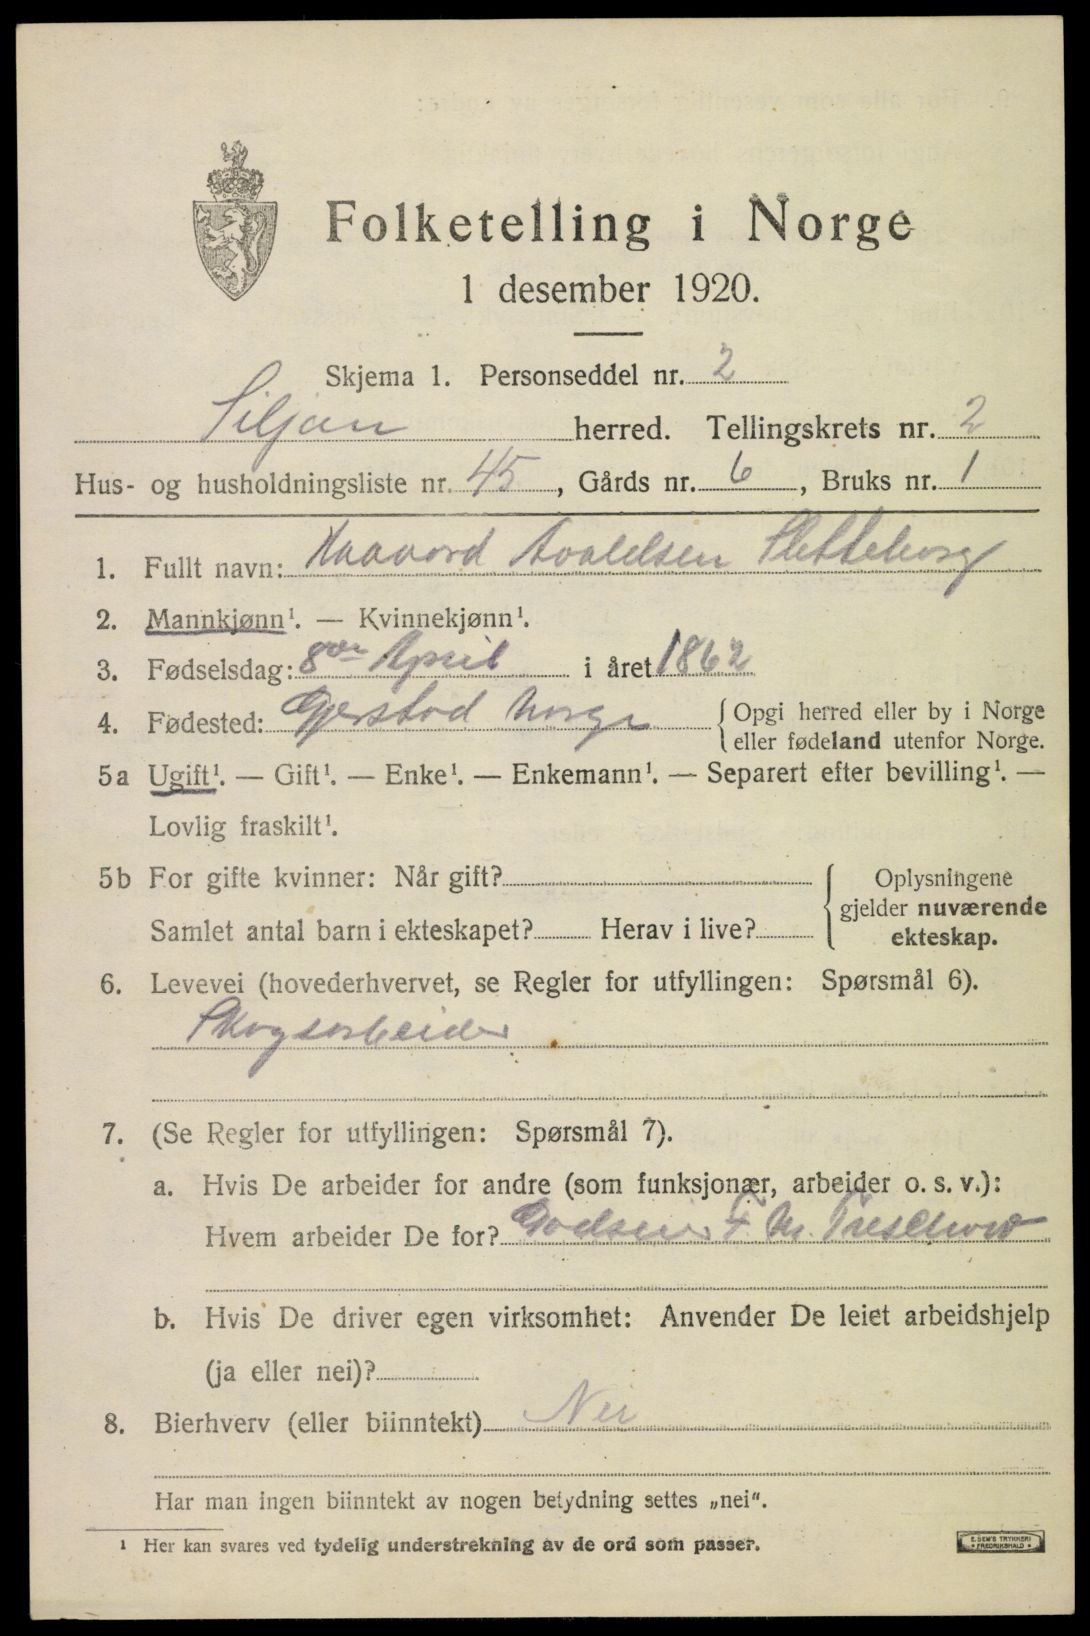 Folketelling i Norge
1 desember 1920.
Skjema 1. Personseddel nr. 2
Siljan herred. Tellingskrets nr. 2
Hus- og husholdningsliste nr. 45, Gårds nr. 6, Bruks nr. 1
1. Fullt navn: Haavord Sletteborg
2. Mannkjønn¹. — Kvinnekjønn¹.
3. Fødselsdag: 8de April i året 1862
4. Fødested: Gjerstad Norge { Opgi herred eller by i Norge
eller fødeland utenfor Norge.
5a Ugift¹. — Gift¹. — Enke¹. — Enkemann¹. — Separert efter bevilling¹. —
Lovlig fraskilt¹.
5b For gifte kvinner: Når gift?
Samlet antal barn i ekteskapet? Herav i live?
{ Oplysningene
gjelder nuværende
ekteskap.
6. Levevei (hovederhvervet, se Regler for utfyllingen: Spørsmål 6).
Skogsarbeider
7. (Se Regler for utfyllingen: Spørsmål 7).
a. Hvis De arbeider for andre (som funksjonær, arbeider o. s. v.):
Hvem arbeider De for? Godseier F. M. Treschow
b. Hvis De driver egen virksomhet: Anvender De leiet arbeidshjelp
(ja eller nei)?
8. Bierhverv (eller biinntekt) Nei
Har man ingen biinntekt av nogen betydning settes „nei".
¹ Her kan svares ved tydelig understrekning av de ord som passer.
E. SEM'S TRYKKERI
• FREDRIKSHALD •